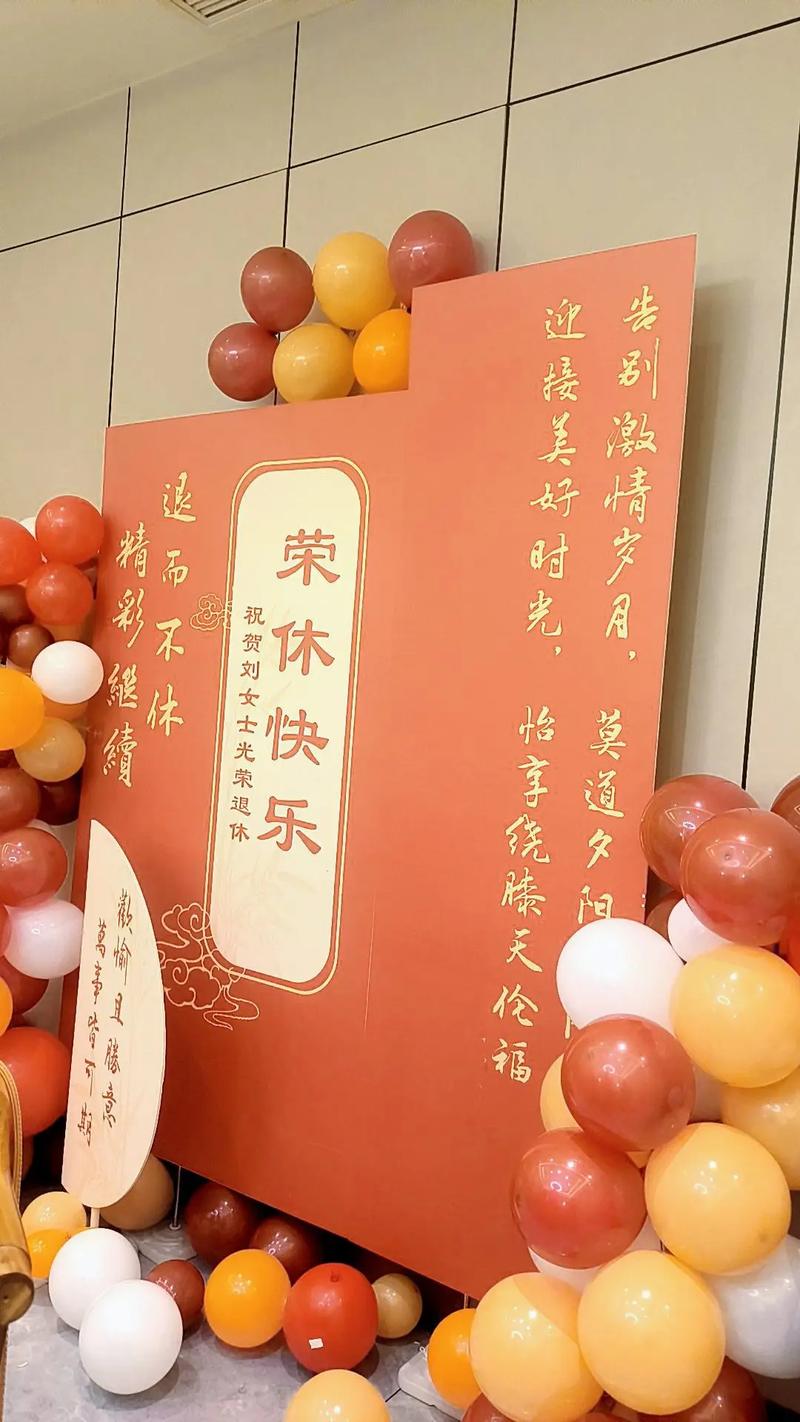 告别激情岁月，莫道夕阳
迎接美好时光，怡享绕膝天伦福
荣休快乐
祝贺刘女士光荣退休
退而不休
精彩繼續
歡愉且勝意
萬事皆可期